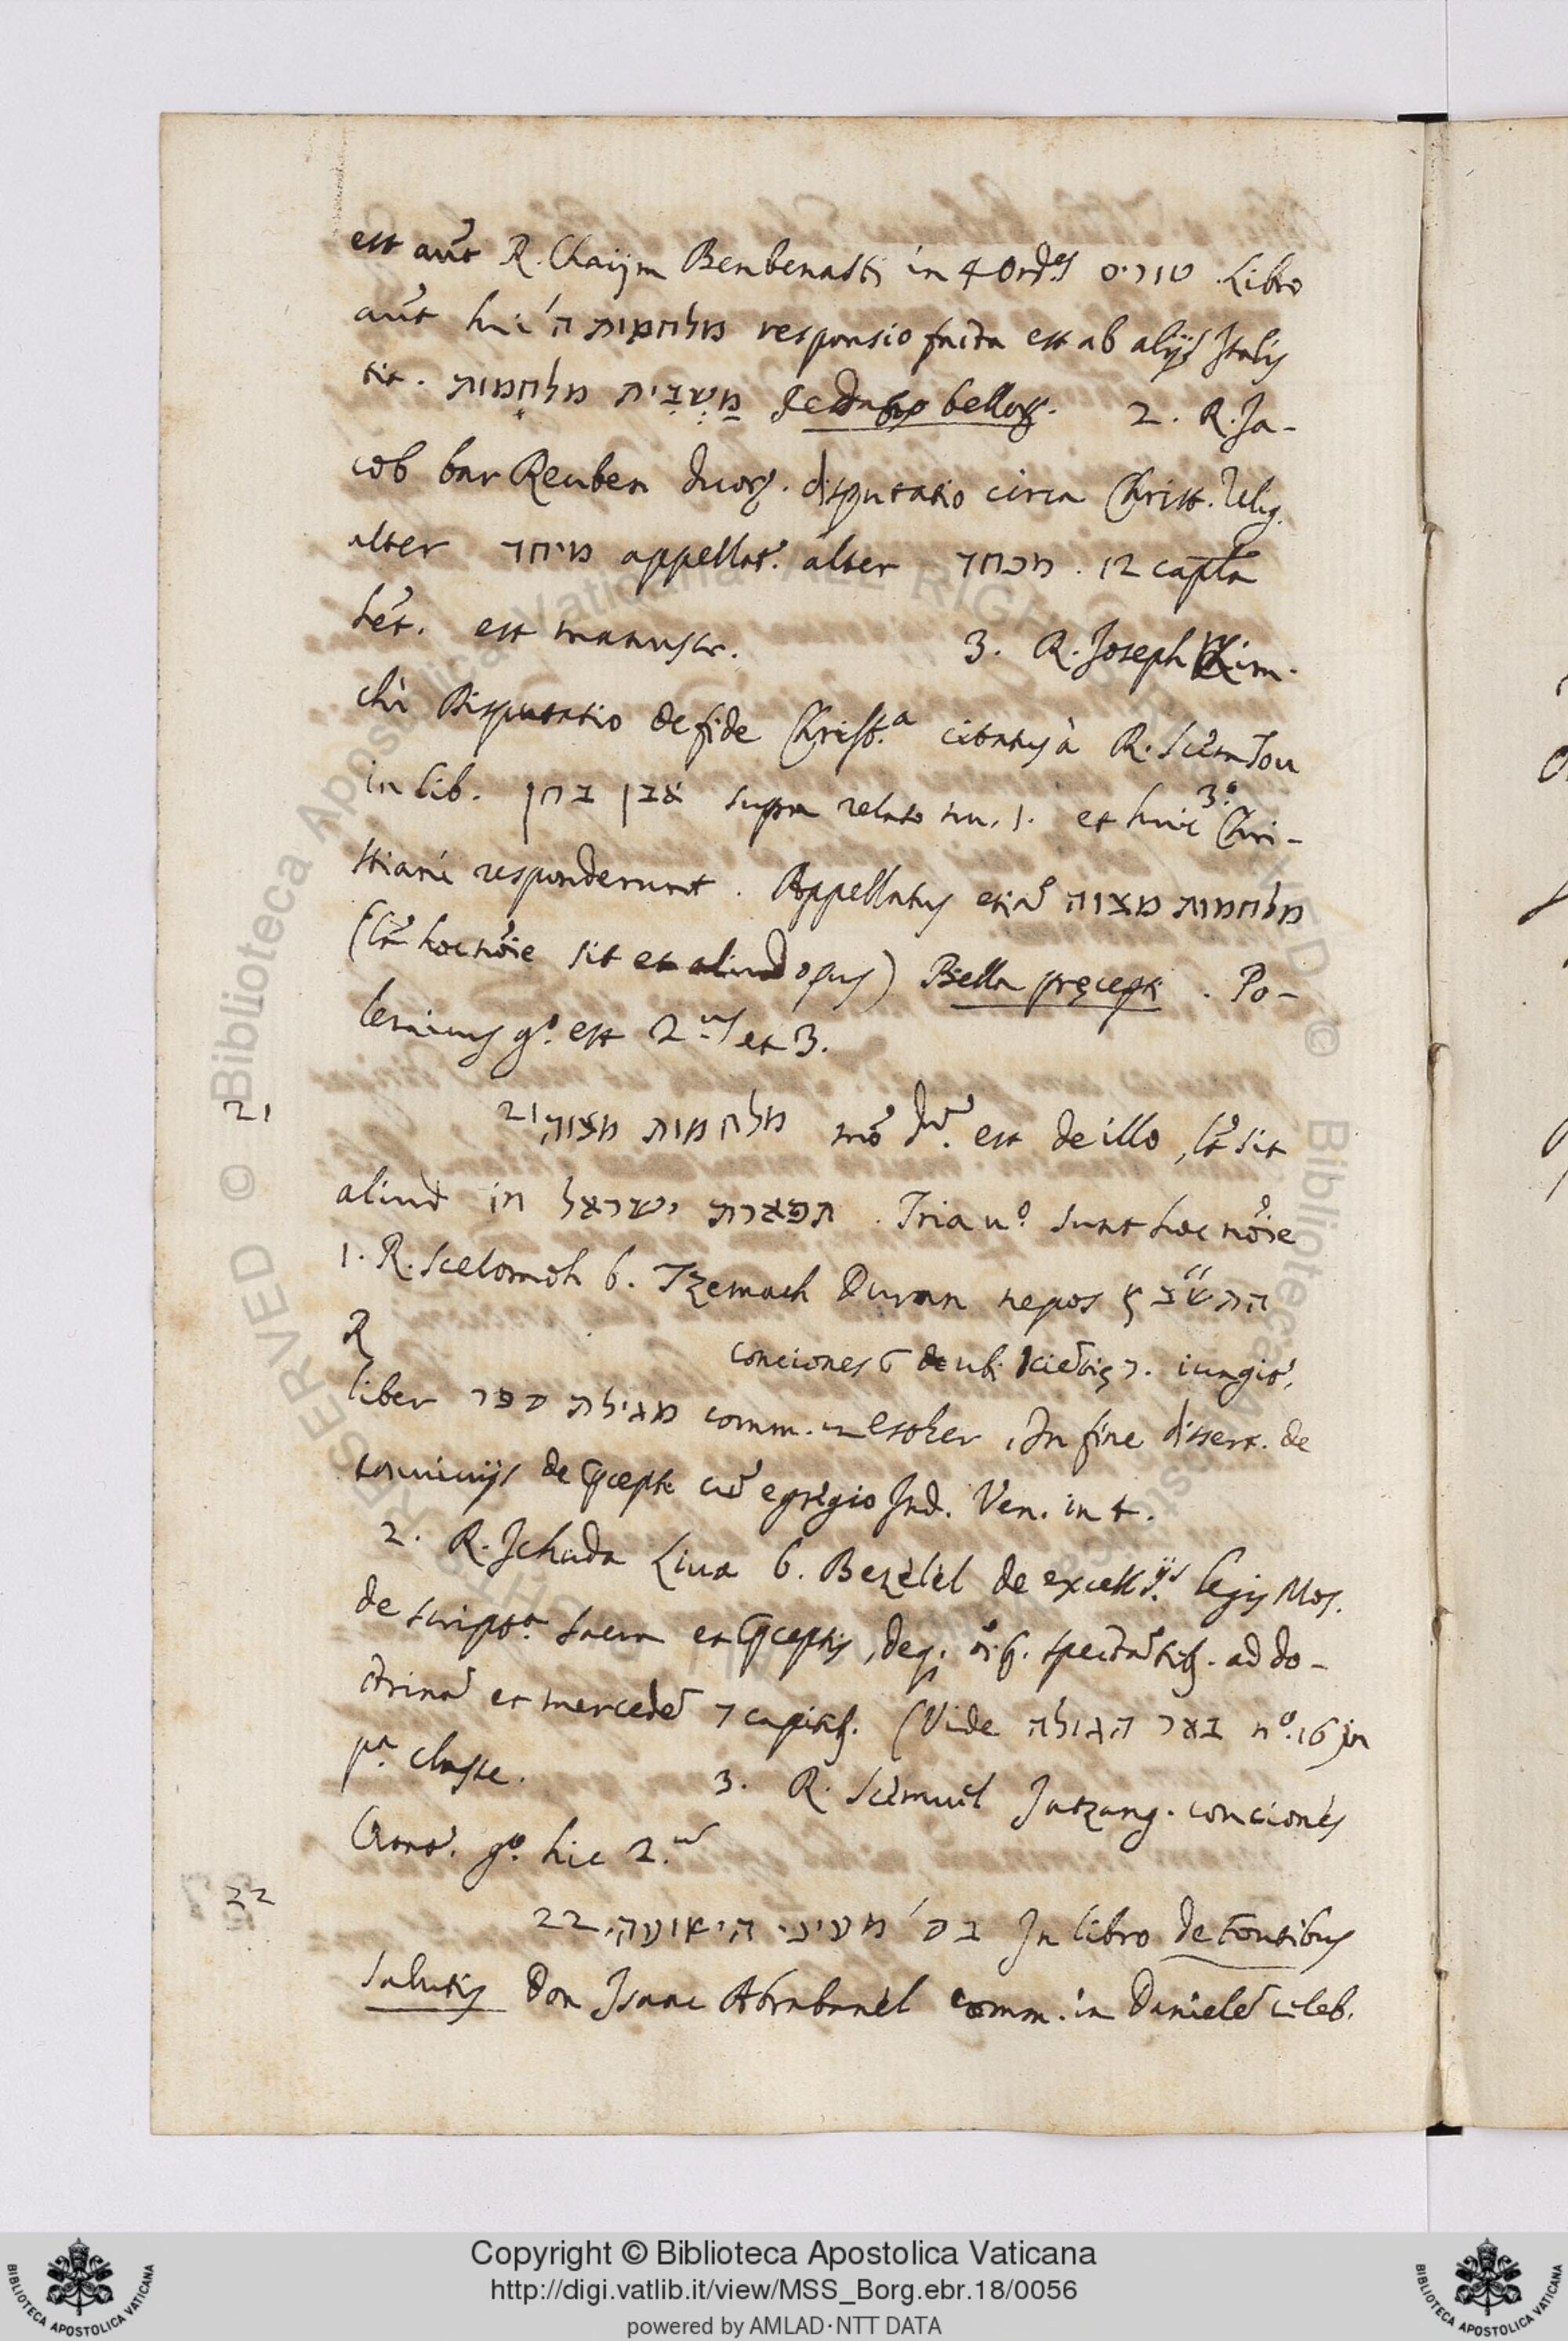 est aut̃ R. Chaijm Benbenasti in 4 Ord.es טורים. Libro
aut̃ huic מלחמות ה' responsio facta est ab alijs Italis
tit. מַשְׁבִּית מלחָמות Sedatio bellor. 2. R. Ja-
cob bar Reuben duor. disputatio circa Christ. relig.
alter מיחד appellat̃. alter מכחד. 12 capĩla
hẽt. est manuscr. 3. R. Joseph Kim-
chi Disputatio de fide Christ.a citatus à R. Scem Tou
in lib. אבן בחן supra relato nu. 1. et huic 3.o Chri-
stiani responderunt. Appellatus etiã מלחמות מצוה
(lĩ hoc nõie sit et aliud opus) Bella pręcepti. Po-
lemicus g.o est 2.us et 3.
21 21 מלחמות מצוה mõ est de illo, lĩ sit
aliud in תפארת ישראל. Tria u.o sunt hoc nõie
1. R. Scelomoh b. Tzemach Duran nepos התשב״ץ
R conciones 6 de ubi iungit̃.
liber מגילת ספר comm. in Esther, In fine dissert. de
conuiuijs de pcept cũ egregio Ind. Ven. in 4.
2. R. Jehuda Liua b. Bezelel de excell.ijs legis Mos.
de script.a sacra et pceptis, deq. spectãtib. ad do-
ctrinã et mercedẽ 7 capitib. (Vide באר הגולה n.o 16) in
p.a classe. 3. R. Scemuel Jatzang. conciones
Citat̃. g.o hic 2.us
22 22 בס' מעיני הישועה. In libro de Fontibus
salutis Don Isaac Abrabanel comm. in Danielẽ celeb.
Copyright © Biblioteca Apostolica Vaticana
http://digi.vatlib.it/view/MSS_Borg.ebr.18/0056
powered by AMLAD·NTT DATA